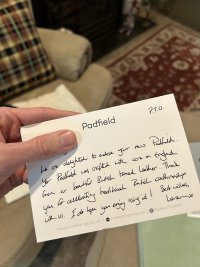 P.T.O.
Padfield
We are delighted to enclose your new Padfield.
Your Padfield was crafted with care in England
from a beautiful British tanned leather. Thank
you for celebrating traditional British craftsmanship
with us. I do hope you enjoy using it! Best wishes,